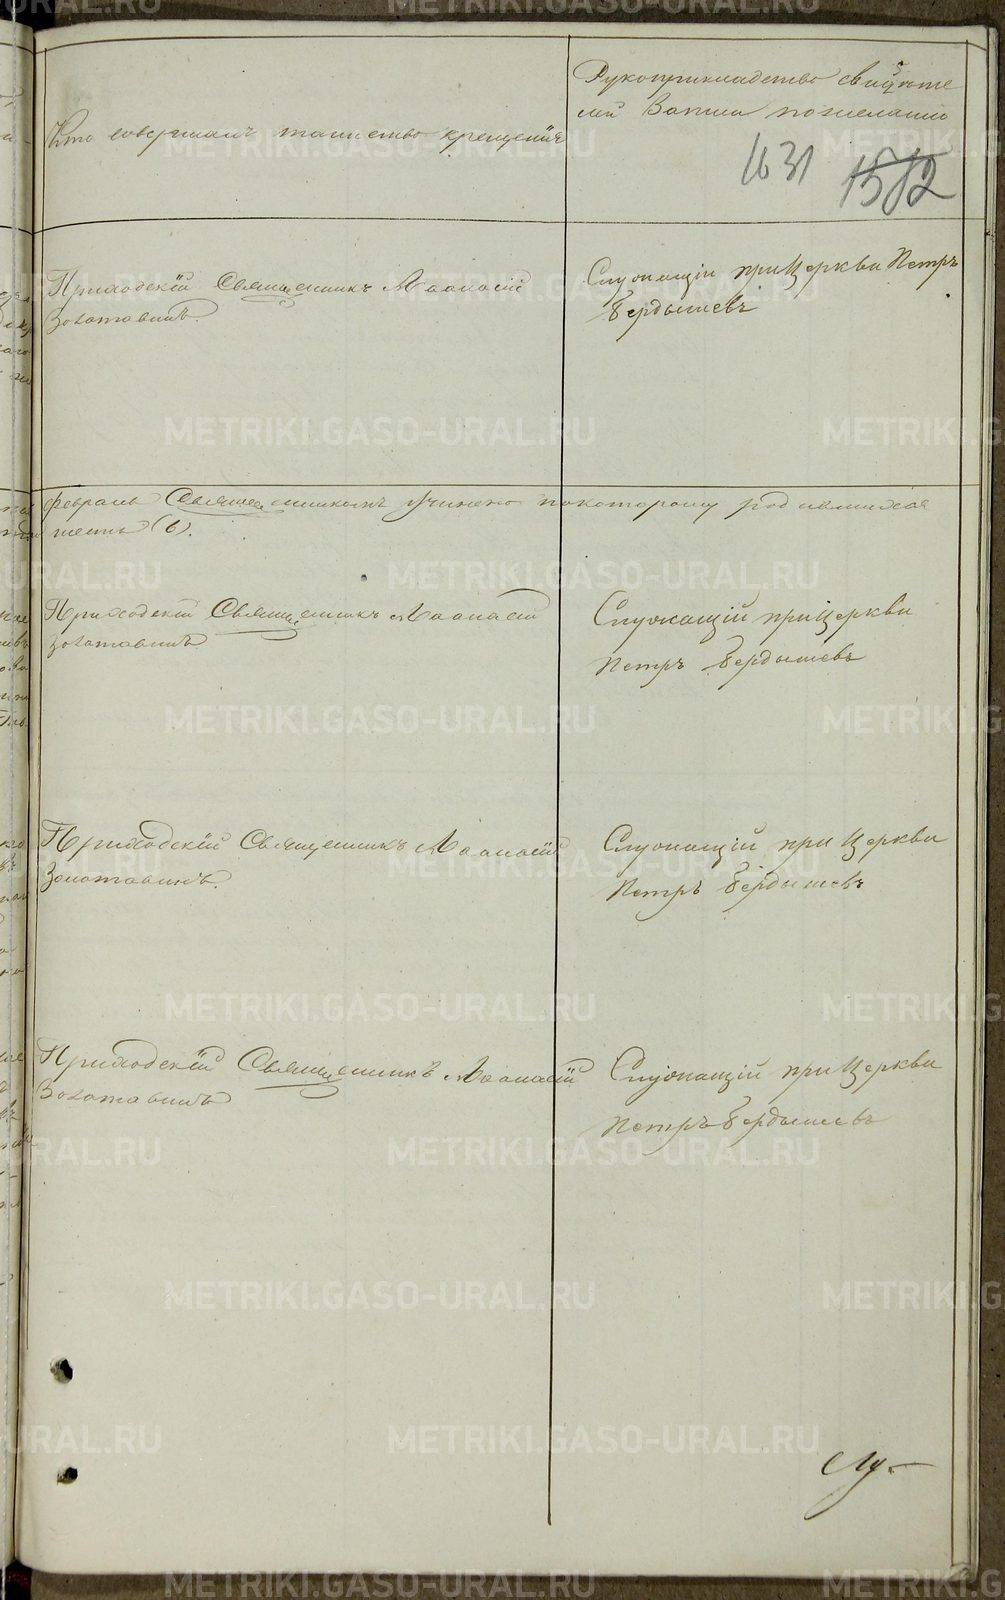 Кто совершалъ таинство крещенія
Рукоприкладство свидѣте
лей записи по желанію
1631 1582
Приходскій Священникъ Аѳанасій
Золотавинъ
Служащій при Церкви Петръ
Бердышевъ
февраль Священникомъ учинено по которому родившихся
шесть (6).
Приходскій Священникъ Аѳанасій
Золотавинъ
Служащій при Церкви
Петръ Бердышевъ
Приходскій Священникъ Аѳанасій
Золотавинъ.
Служащій при Церкви
Петръ Бердышевъ
Приходскій Священникъ Аѳанасій
Золотавинъ
Служащій при Церкви
Петръ Бердышевъ
METRIKI.GASO-URAL.RU